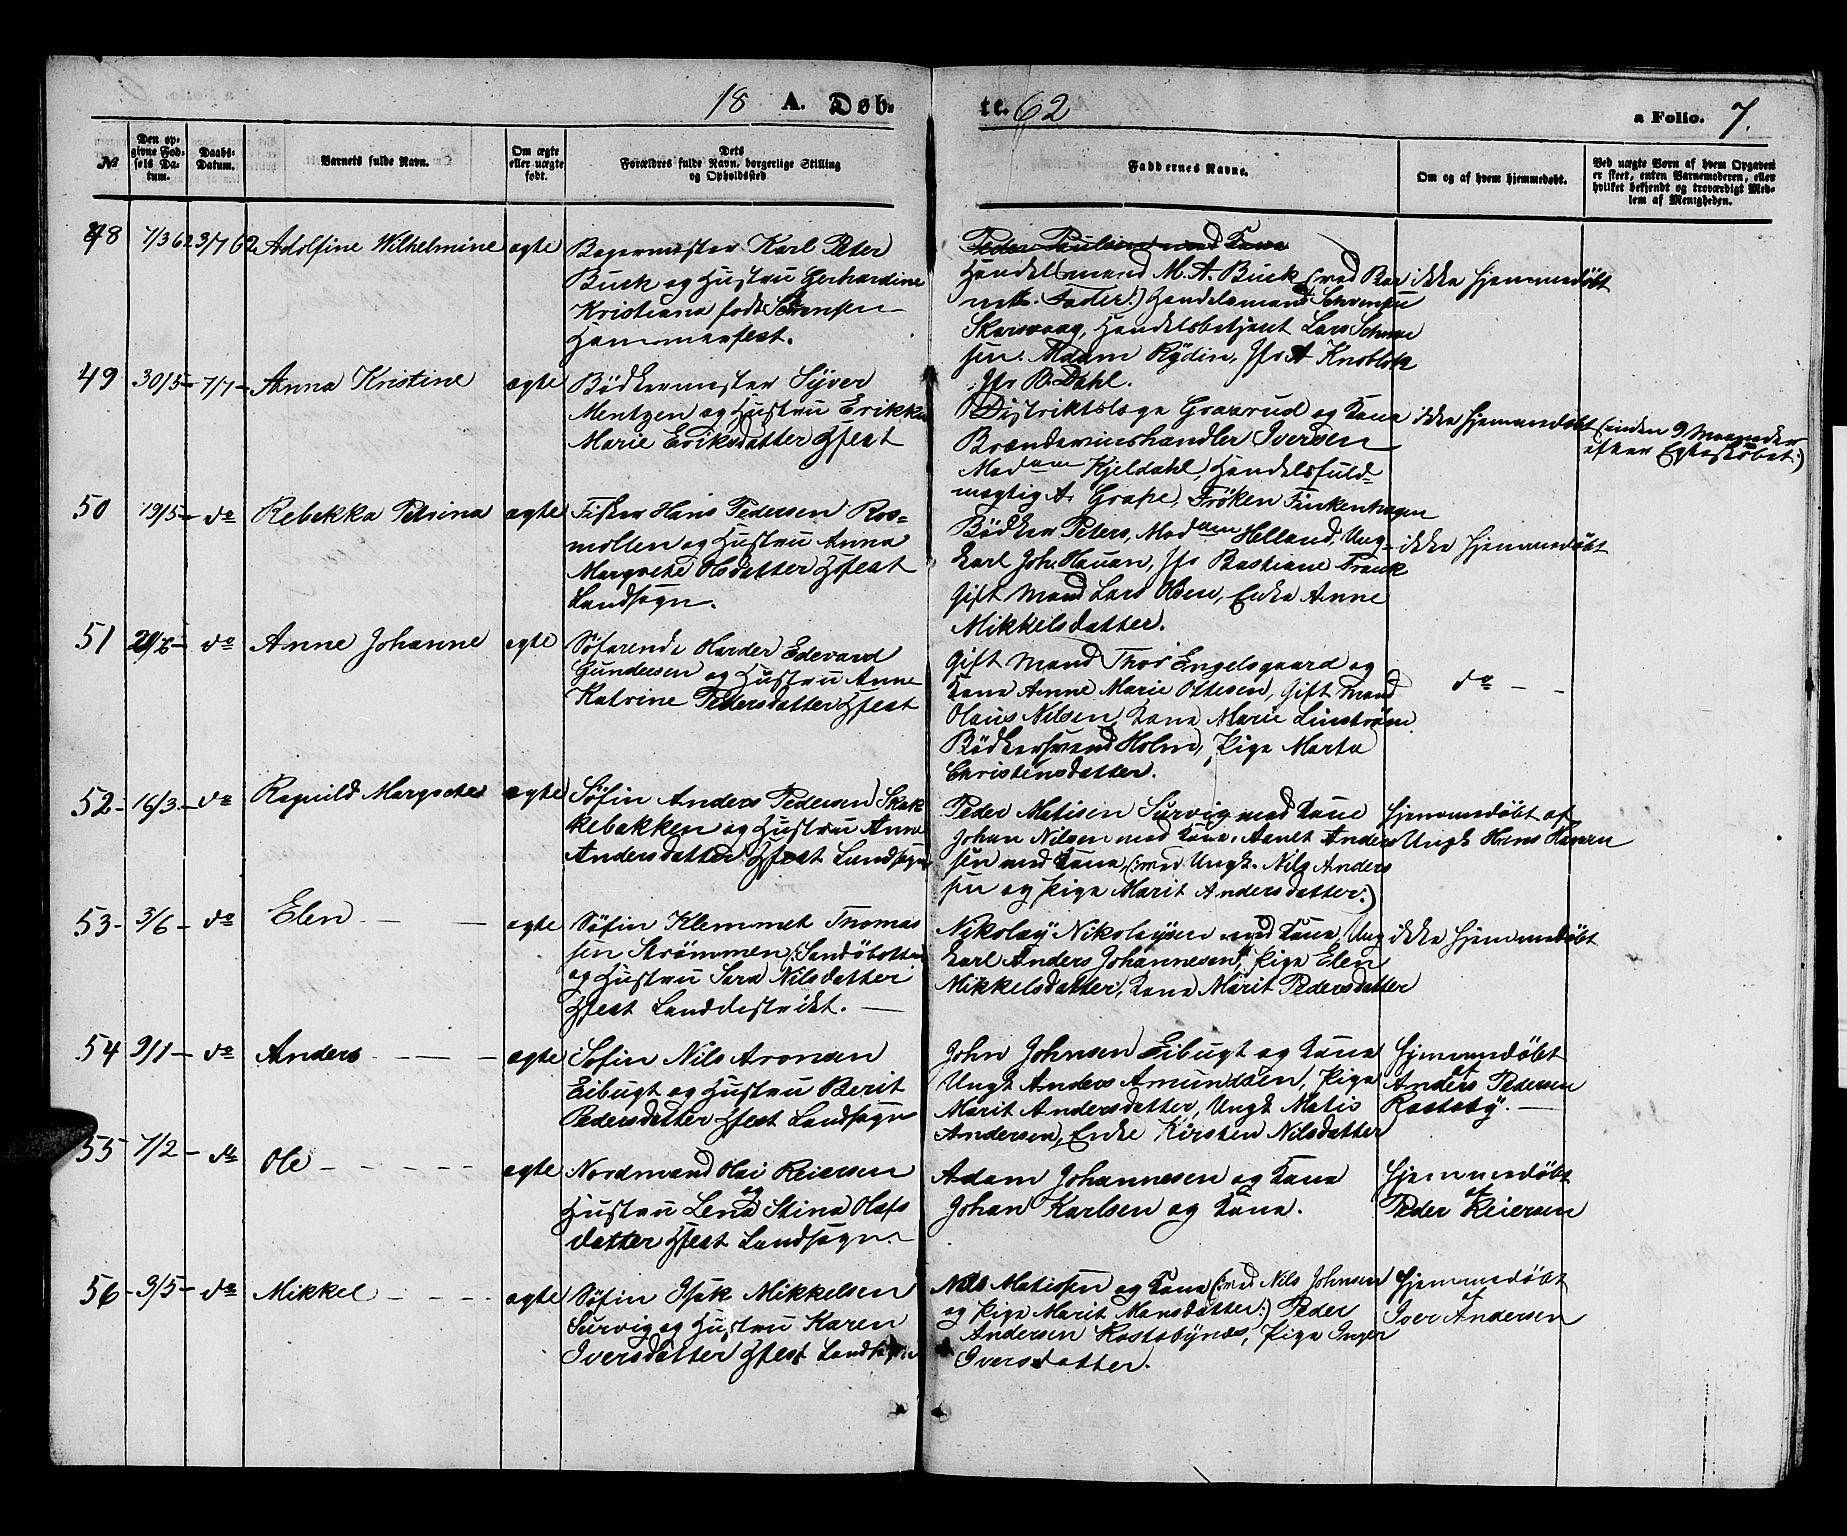 18 A. Døb-
te. 62
a Folio. 7.
№
Den op-
givne Fød-
sels Da-
tum.
Daabs-
Datum.
Barnets fulde Navn.
Om ægte
eller uægte
født.
Dets
Forældres fulde Navn, borgerlige Stilling
og Opholdssted.
Faddernes Navne.
Om og af hvem hjemmedøbt.
Ved uægte Børn af hvem Opgaven
er skeet, enten Barnemoderen, eller
hvilket bekjendt og troværdigt Med-
lem af Menigheden.
48 7/3 62 3/7 62 Adolfine Wilhelmine ægte
Bagermester Karl Peter
Buck og Hustru Gerhardine
Kristiana født Sørensen
Hammerfest.
Peder Paulsen med Kone
Handelsmand M. A. Buck (:ved Bar
nets Fader:) Handelsmand
Skarsvaag, Handelsbetjent Lars
sen. Madam Rydin, Jfr A Knoblok
Jfr B. Dahl.
ikke hjemmedøbt
49 30/5 - 7/7 - Anna Kristine ægte
Bødkermester Syver
Mentzen og Hustru Erikka
Marie Eriksdatter Hfest
Distriktslæge Graarud og Kone
Brændevinshandler Iversen
Madam Kjeldahl, Handelsfuld-
mægtig A. Grape, Frøken Finkenhagen
ikke hjemmedøbt
(:inden 9 Maaneder
efter Egteskabet:)
50 19/5 - do Rebekka Petrina ægte
Fisker Hans Pedersen Ros-
mollen og Hustru Anna
Margrethe Olsdatter Hfest
Landsogn.
Bødker Peters, Madam Helland, Ung-
karl Joh. Hauan, Jfr Bastiane Franck
Gift Mand Lars Olsen, Enke Anne
Mikkelsdatter.
ikke hjemmedøbt
51 do Anne Johanne ægte
Søfarende Harder Edevard
Gundersen og Hustru Anne
Katrine Pedersdatter Hfest
Gift Mand Thor Engelsgaard og
Kone Anne Marie Ottesen, Gift Mand
Olaus Nilsen, Kone Marie Linstrøm
Bødkersvend Holm, Pige Marta
Christensdatter.
do - -
52 - 16/3 - do Ragnild Margrethe ægte
Søfin Anders Pedersen Skak
kebakken og Hustru Anne
Andersdatter Hfest Landsogn
Peder Matisen Survig med Kone
Johan Nilsen med Kone, Aanet Anders
sen med Kone (:med Ungk. Nils Anders
sen og Pige Marit Andersdatter:)
hjemmedøbt af
Ungk Hans Hansen
53 - 3/6 - do Elen - - ægte
Søfin Klemmet Thomas
sen Strømmen (:Sandøbotten
og Hustru Sara Nilsdatter
Hfest Landdistrikt. -
Nikolay Nikolaysen med Kone, Ung
karl Anders Johannesen, Pige Elen
Mikkelsdatter, Kone Marit Pedersdatter
ikke hjemmedøbt
54 9/1 - do Anders - - - - ægte
Søfin Nils Aronsen
Eibugt og Hustru Berit
Pedersdatter Hfest Landsogn
John Johnsen Eibugt og Kone
Ungk Anders Amundsen, Pige
Marit Andersdatter, Ungk Matis
Andersen, Enke Kirsten Nilsdatter
hjemmedøbt
af
Anders Pedersen
Rastaby. -
55 7/2 - do Ole - - - - - ægte
Nordmand Olai Reiersen
og
Hustru Lena Stina Olafs
datter Hfest Landsogn
Adam Johannesen og Kone
Johan Karlsen og Kone.
hjemmedøbt
af
Peder Reiersen
56 - 9/5 - do Mikkel - - - - ægte
Søfin Isak Mikkelsen
Survig og Hustru Karen
Iversdatter Hfest Landsogn
Nils Matissen og Kone (:med Nils Johnsen
og Pige Marit Monsdatter:) Peder
Andersen Rastabynes, Pige Inger
Iversdatter.
hjemmedøbt
af
Iver Andersen